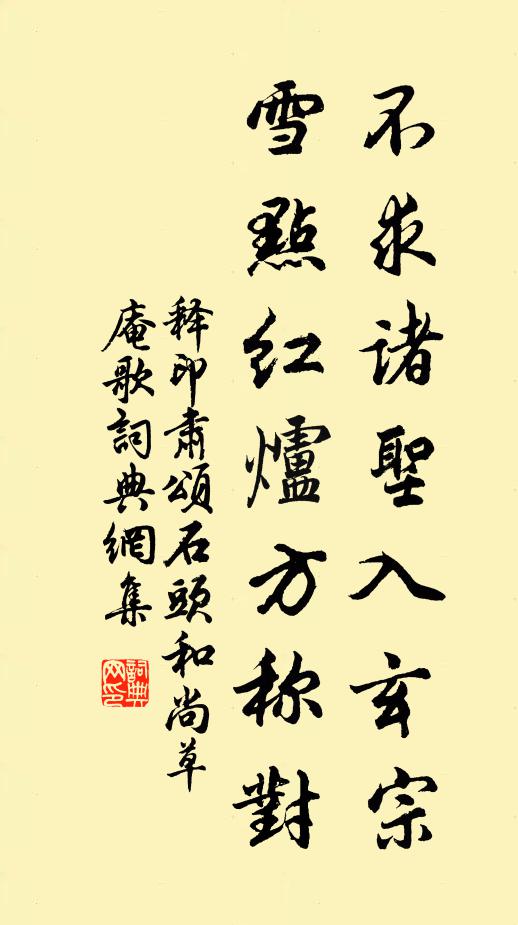 不求诸聖入玄宗
雪點红爐方称對
释印肃頌石頭和尚草
庵歌詞典網集
詞典网印